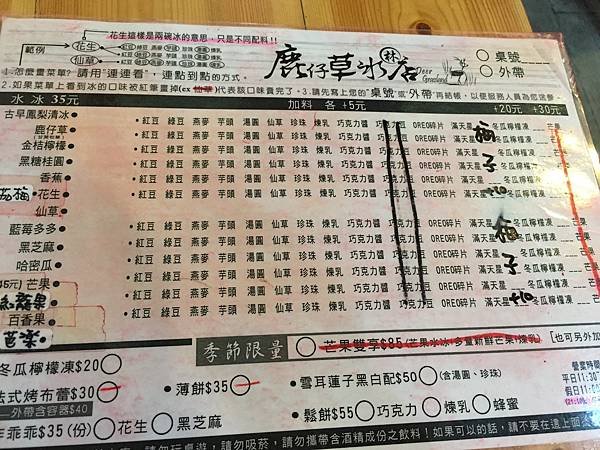 花生這樣是兩碗冰的意思,只是不同配料!!
範例
花生 紅豆 綠豆 燕麥 芋頭 珍珠 湯圓 煉乳
仙草 紅豆 綠豆 燕麥 芋頭 珍珠 湯圓 煉乳
鹿仔草冰店
林
Deer Grassland
桌號
外帶
1.怎麼畫菜單? 請用"連連看",連點到點的方式.
2.如果菜單上看到冰的口味被紅筆畫掉(ex 仙草)代表該口味賣完了.3.請先寫上您的"桌號"或"外帶"再結帳,以便服務人員為您送餐.
水冰 35元 加料 各 +5元 +20元 +30元
古早鳳梨清冰 • 紅豆 綠豆 燕麥 芋頭 湯圓 仙草 珍珠 煉乳 巧克力醬
鹿仔草 • 紅豆 綠豆 燕麥 芋頭 湯圓 仙草 珍珠 煉乳 巧克力醬 OREO碎片 滿天星 冬瓜檸檬凍 芒果
金桔檸檬 • 紅豆 綠豆 燕麥 芋頭 湯圓 仙草 珍珠 煉乳 巧克力醬 OREO碎片 滿天星 冬瓜檸檬凍
黑糖桂圓 • 紅豆 綠豆 燕麥 芋頭 湯圓 仙草 珍珠 煉乳 巧克力醬 OREO碎片 滿天星 冬瓜檸檬凍
香蕉 • 紅豆 綠豆 燕麥 芋頭 湯圓 仙草 珍珠 煉乳 巧克力醬 OREO碎片 滿天星 冬瓜檸檬凍
花生 • 紅豆 綠豆 燕麥 芋頭 湯圓 仙草 珍珠 煉乳 巧克力醬 OREO碎片 滿天星 冬瓜檸檬凍 芒果
仙草
藍莓多多 • 紅豆 綠豆 燕麥 芋頭 湯圓 仙草 珍珠 煉乳 巧克力醬 OREO碎片 滿天星 冬瓜檸檬凍
黑芝麻 • 紅豆 綠豆 燕麥 芋頭 湯圓 仙草 珍珠 煉乳 巧克力醬 OREO碎片 滿天星 冬瓜檸檬凍
哈密瓜 • 紅豆 綠豆 燕麥 芋頭 湯圓 仙草 珍珠 煉乳 巧克力醬 OREO碎片 滿天星 冬瓜檸檬凍
45元) 芒果 • 紅豆 綠豆 燕麥 芋頭 湯圓 仙草 珍珠 煉乳 巧克力醬 OREO碎片 滿天星 冬瓜檸檬凍
• 紅豆 綠豆 燕麥 芋頭 湯圓 仙草 珍珠 煉乳 巧克力醬 OREO碎片 滿天星 冬瓜檸檬凍 芒果
百香果
芭樂
梅子 +10
梅子 +10
冬瓜檸檬凍$20
季節限量
芒果雙享$85(芒果水冰+多量新鮮芒果+煉乳)
[也可另外加
法式烤布蕾$30
• 薄餅$35
• 雪耳蓮子黑白配$50 (含湯圓、珍珠)
外帶含容器$40
乖乖$35(份) 花生 黑芝麻
• 鬆餅$55 巧克力 煉乳 蜂蜜
營業時間
平日11:30
假日11:00
請勿玩桌遊,請勿吸菸,請勿攜帶含酒精成份之飲料!如果可以的話,請不要在牆上面